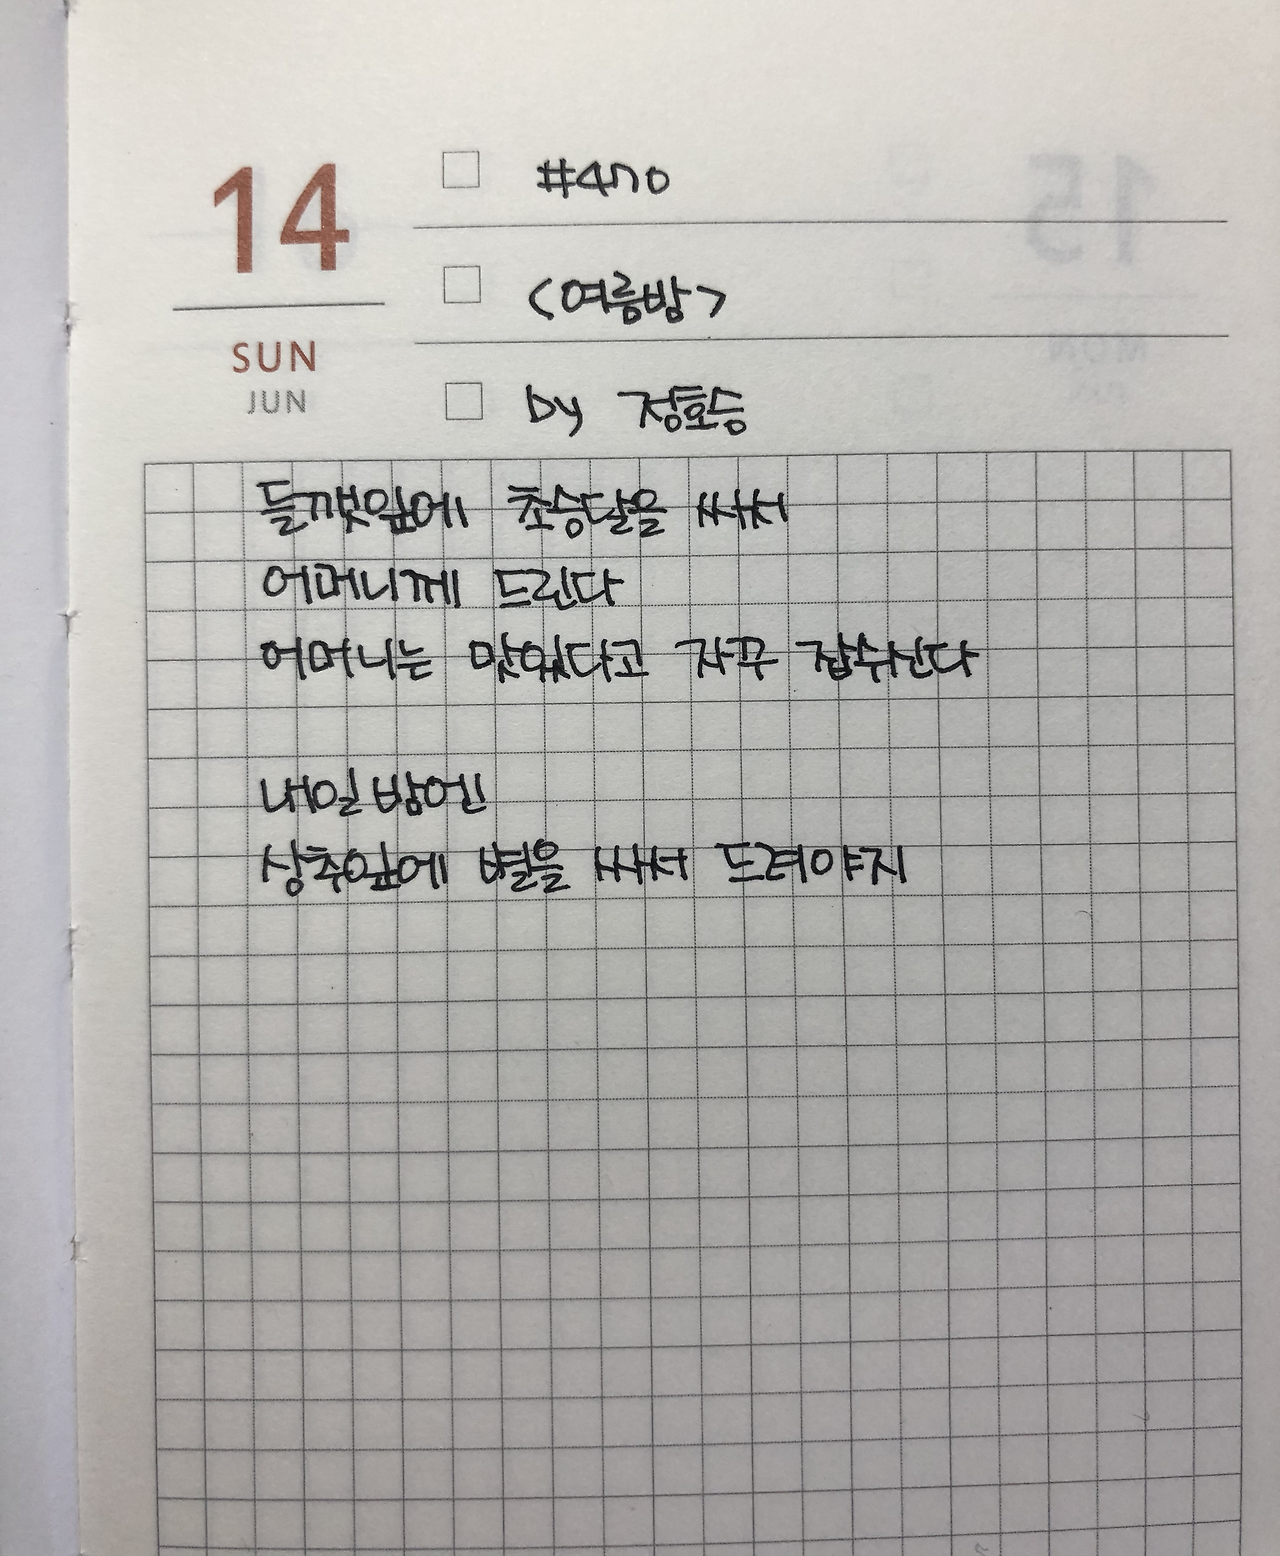 14
SUN
JUN
#470
<여름밤>
by 정호승
들깻잎에 초승달을 싸서
어머니께 드린다
어머니는 맛있다고 자꾸 잡수신다
내일 밤엔
상추잎에 별을 싸서 드려야지